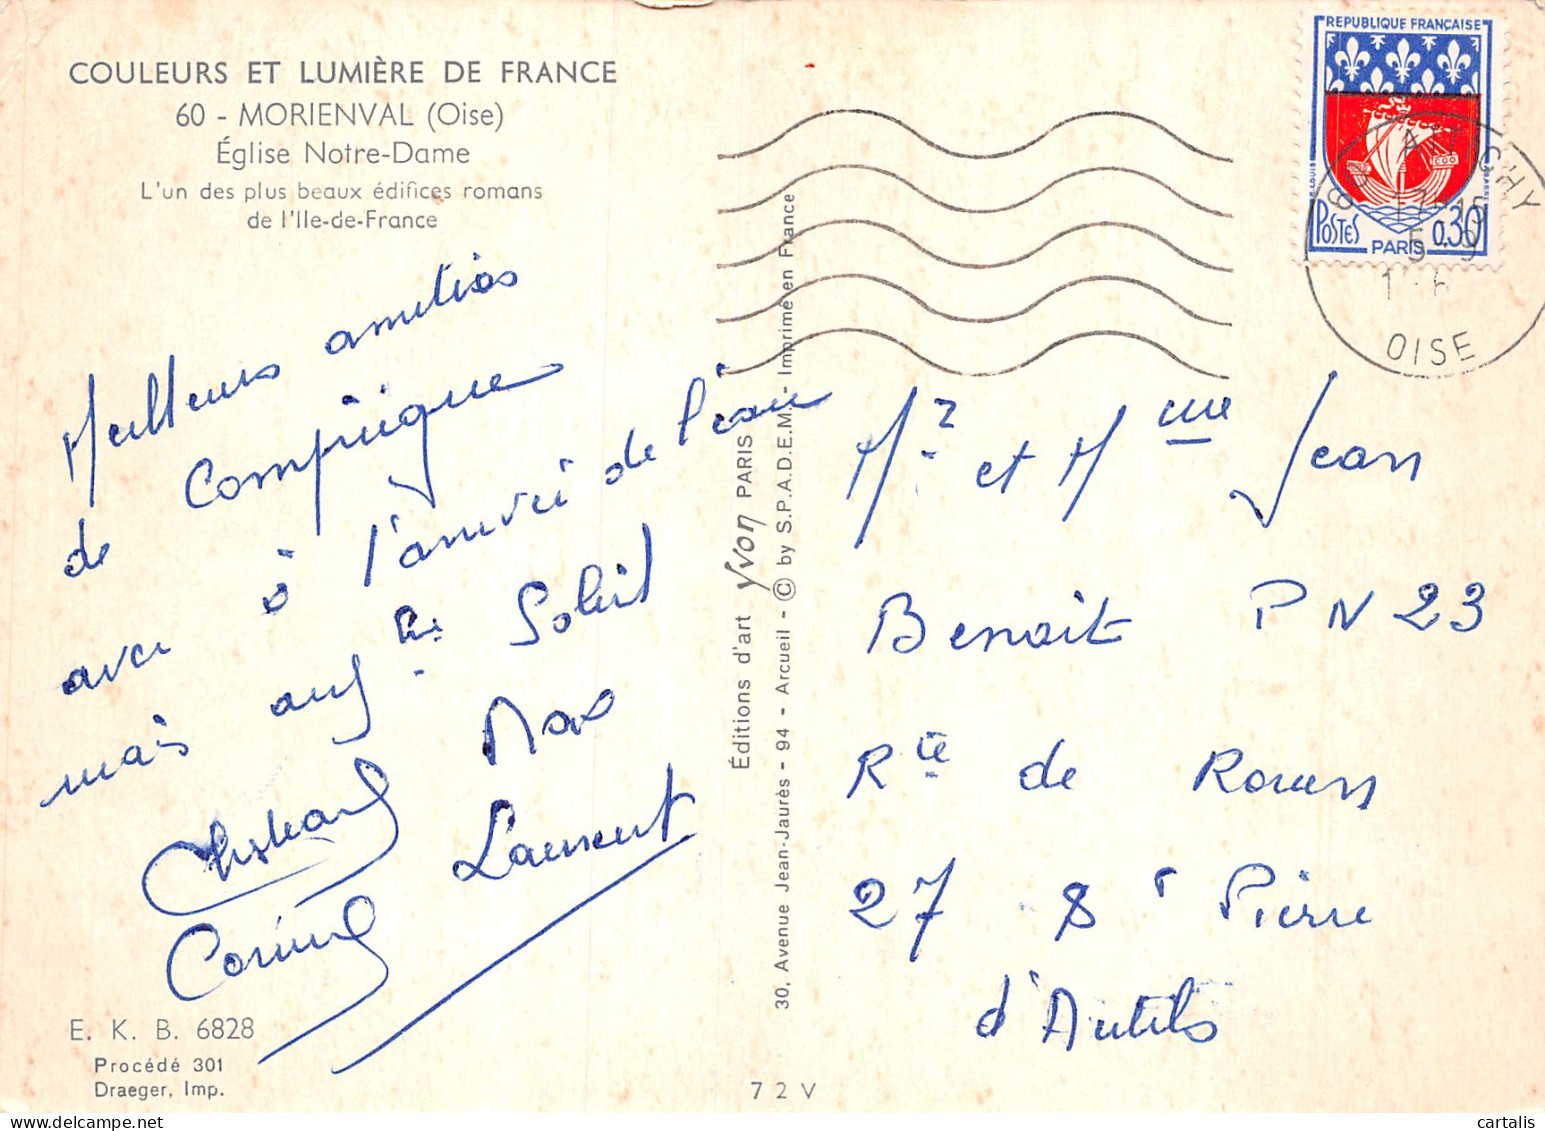 COULEURS ET LUMIÈRE DE FRANCE
60 - MORIENVAL (Oise)
Église Notre-Dame
L'un des plus beaux édifices romans
de l'Ile-de-France
Meilleurs amitiés
de Compiègne
avec à l'arrivée de l'eau
mais Soleil
Max
Laurent
Corinne
E. K. B. 6828
Procédé 301
Draeger, Imp.
Éditions d'art Yvon PARIS
30, Avenue Jean-Jaurès - 94 - Arcueil - © by S.P.A.D.E.M. - Imprimé en France
72V
REPUBLIQUE FRANÇAISE
POSTES PARIS 0,30
OISE
Mr et Mme Jean
Benoit PN 23
Rte de Rouen
27 St Pierre
d'Autils
cartalis
www.delcampe.net